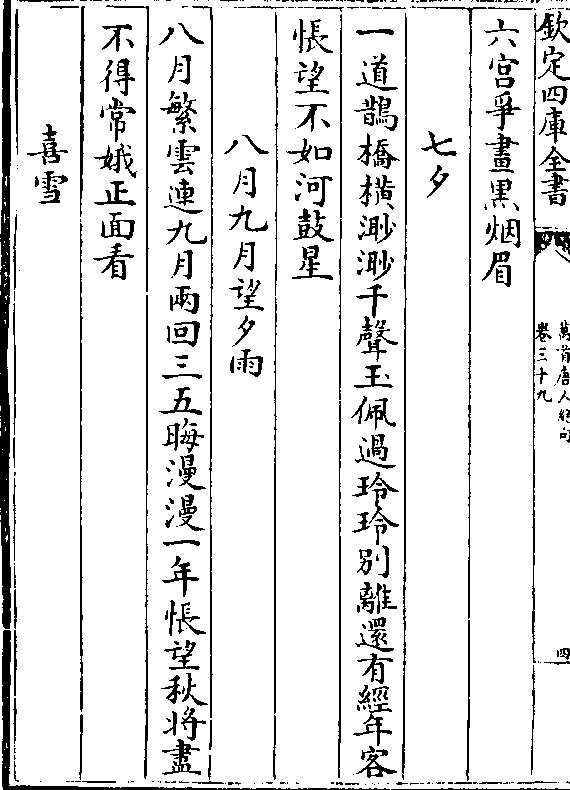 欽定四庫全書
萬首唐人絕句
卷三十九
四
六宫爭畫黑烟眉
七夕
一道鵲橋橫渺渺千聲玉佩過玲玲別離還有經年客
悵望不如河鼓星
八月九月望夕雨
八月繁雲連九月兩回三五晦漫漫一年悵望秋將盡
不得常娥正面看
喜雪